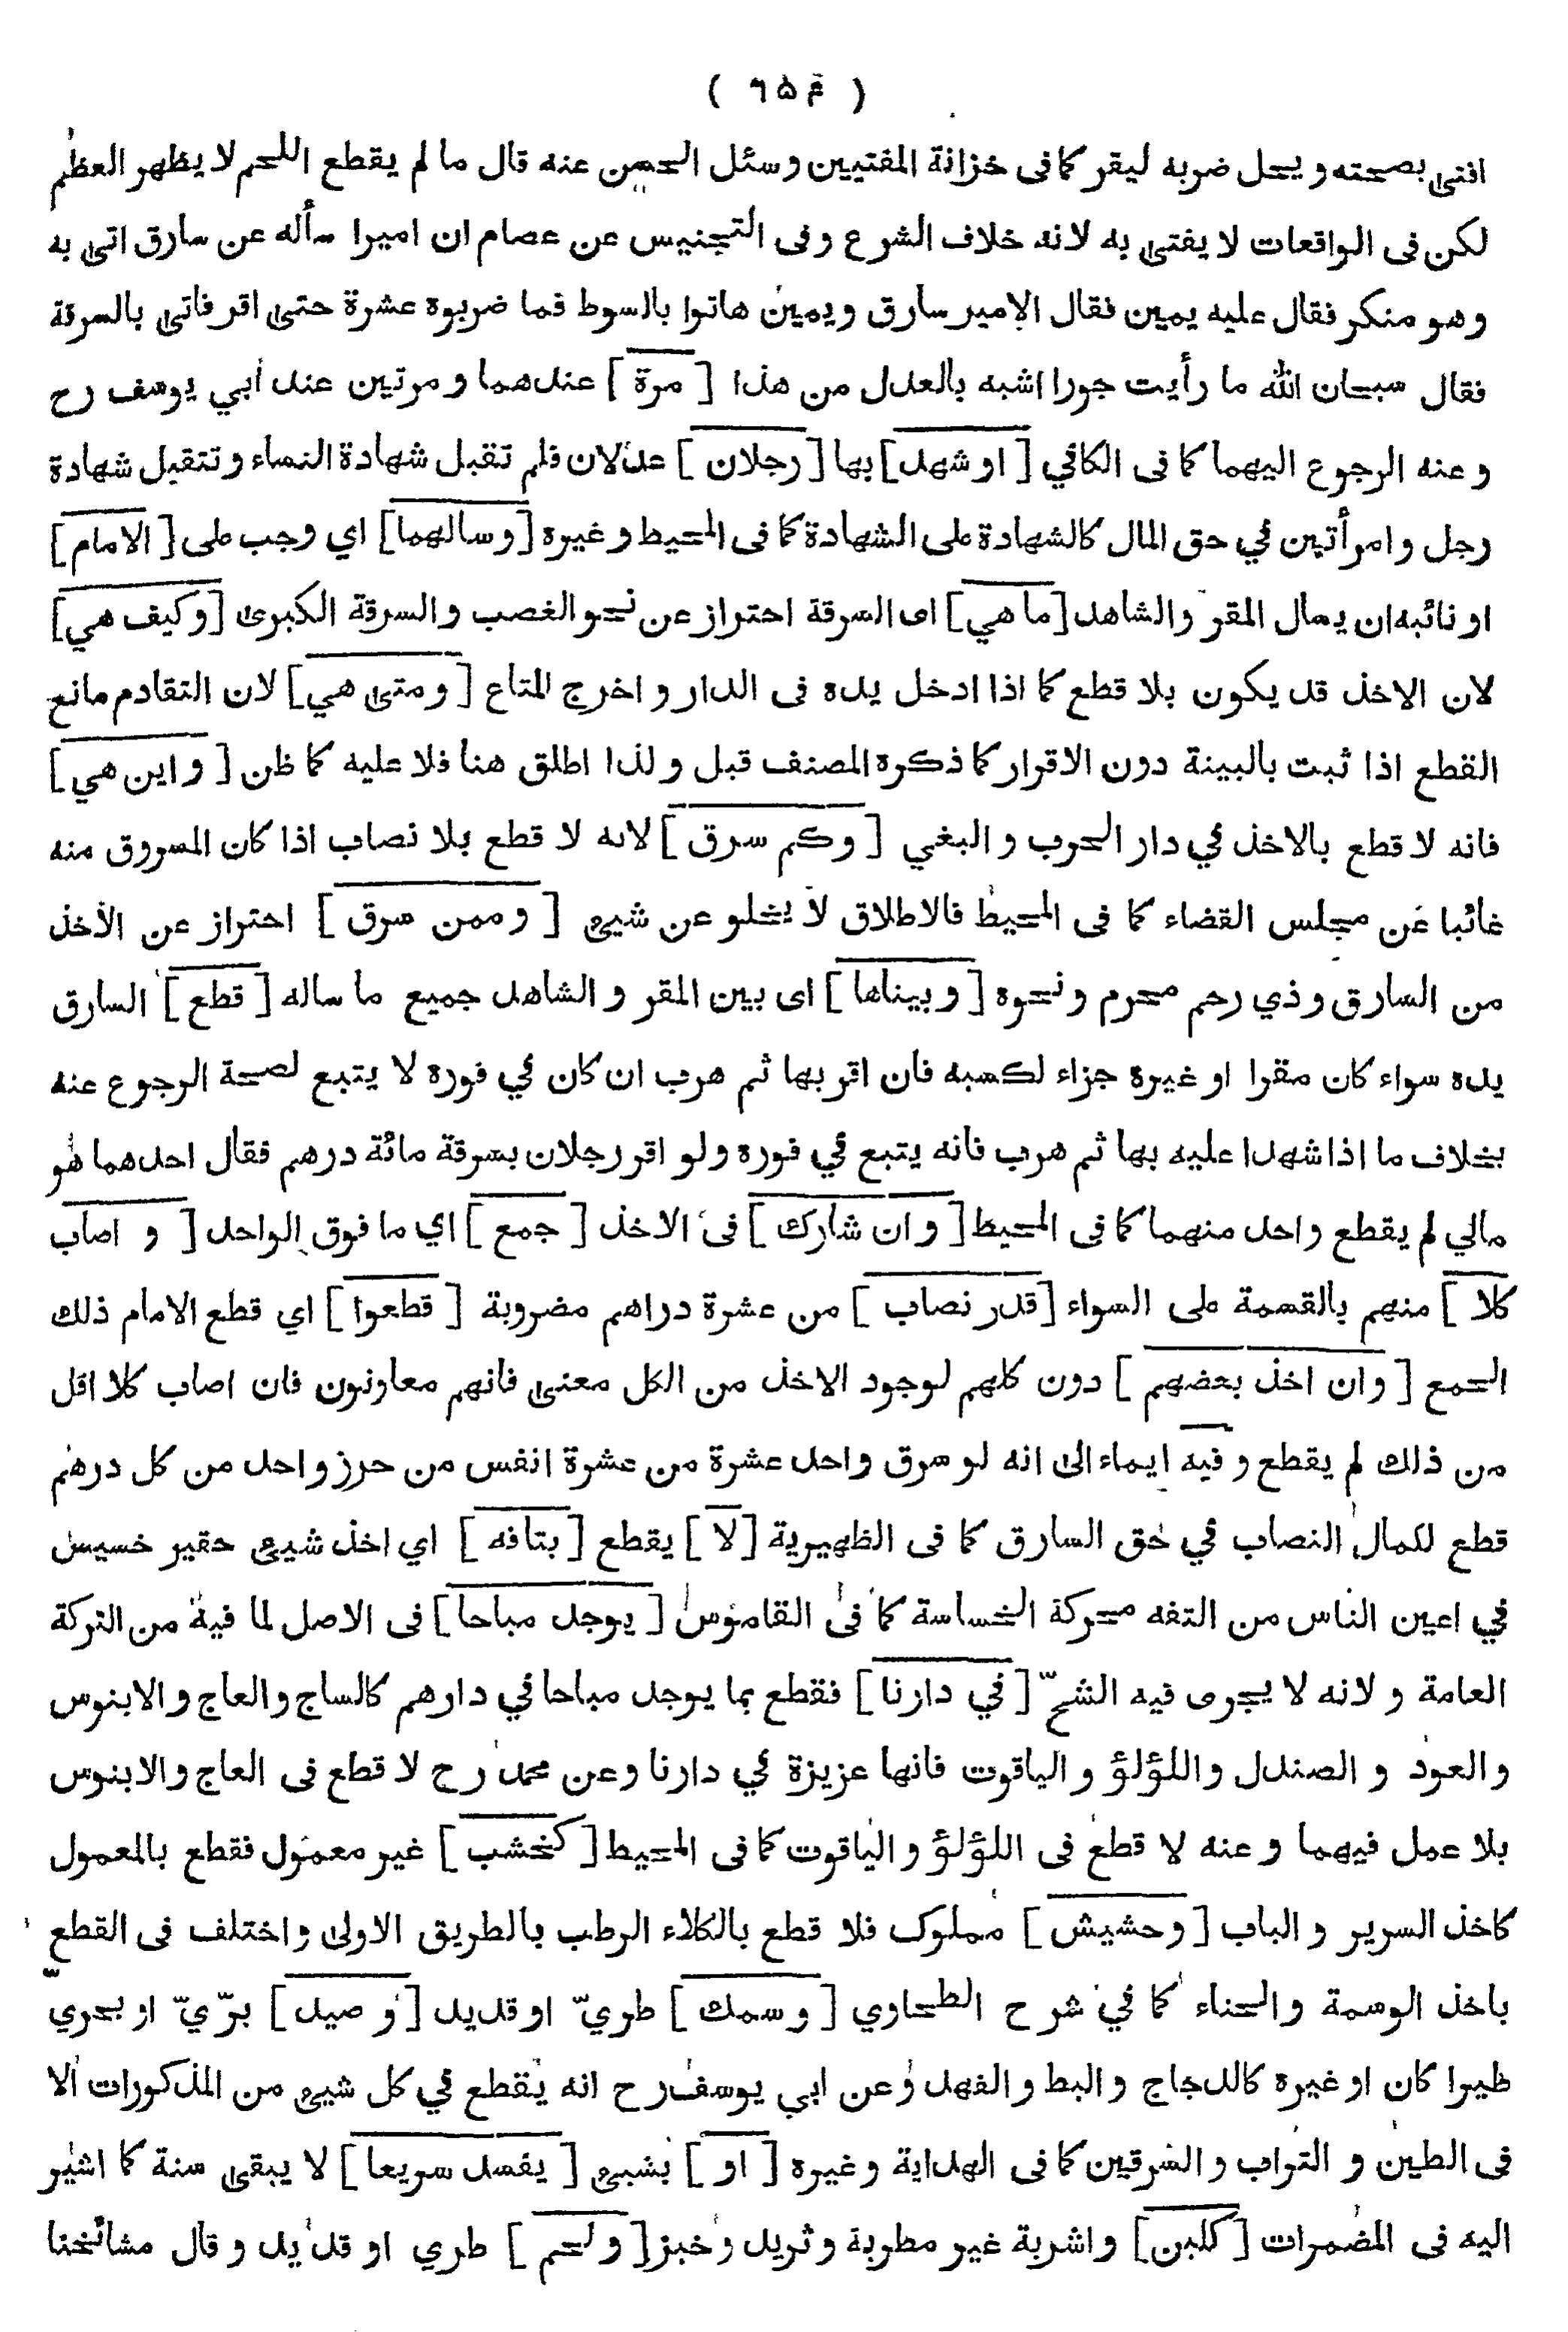 ( ٦٥٤ )
افتى بصحته و يحل ضربه ليقر كما فى خزانة المفتيين و سئل الحسن عنه قال ما لم يقطع اللحم لا يظهر العظم
لكن فى الواقعات لا يفتى به لانه خلاف الشرع و فى التجنيس عن عصام ان اميرا سأله عن سارق اتى به
و هو منكر فقال عليه يمين فقال الامير سارق و يمين هاتوا بالسوط فما ضربوه عشرة حتى اقر فاتى بالسرقة
فقال سبحان الله ما رأيت جورا اشبه بالعدل من هذا [ مرة ] عندهما و مرتين عند أبي يوسف رح
و عنه الرجوع اليهما كما فى الكافي [ او شهد ] بها [ رجلان ] عدلان فلم تقبل شهادة النساء و تتقبل شهادة
رجل و امرأتين في حق المال كالشهادة على الشهادة كما فى المحيط و غيره [ وسالهما ] اي وجب على [ الامام ]
او نائبه ان يسال المقر والشاهد [ ما هي ] اى السرقة احتراز عن نحو الغصب و السرقة الكبرى [ وكيف هي ]
لان الاخذ قد يكون بلا قطع كما اذا ادخل يده فى الدار و اخرج المتاع [ و متى هي ] لان التقادم مانع
القطع اذا ثبت بالبينة دون الاقرار كما ذكره المصنف قبل و لذا اطلق هنا فلا عليه كما ظن [ و اين هي ]
فانه لا قطع بالاخذ في دار الحرب و البغي [ وكم سرق ] لانه لا قطع بلا نصاب اذا كان المسروق منه
غائبا عن مجلس القضاء كما فى المحيط فالاطلاق لا يخلو عن شيئ [ و ممن سرق ] احتراز عن الأخذ
من السارق و ذي رحم محرم و نحوه [ و بيناها ] اى بين المقر و الشاهد جميع ما ساله [ قطع ] السارق
يده سواء كان مقرا او غيره جزاء لكسبه فان اقر بها ثم هرب ان كان في فوره لا يتبع لصحة الرجوع عنه
بخلاف ما اذا شهدا عليه بها ثم هرب فانه يتبع في فوره و لو اقر رجلان بسرقة مائة درهم فقال احدهما هو
مالي لم يقطع واحد منهما كما فى المحيط [ و ان شارك ] فى الاخذ [ جمع ] اي ما فوق الواحد [ و اصاب
كلا ] منهم بالقسمة على السواء [ قدر نصاب ] من عشرة دراهم مضروبة [ قطعوا ] اي قطع الامام ذلك
الجمع [ و ان اخذ بعضهم ] دون كلهم لوجود الاخذ من الكل معنى فانهم معاونون فان اصاب كلا اقل
من ذلك لم يقطع و فيه ايماء الى انه لو سرق واحد عشرة من عشرة انفس من حرز واحد من كل درهم
قطع لكمال النصاب في حق السارق كما فى الظهيرية [ لا ] يقطع [ بتافه ] اي اخذ شيئ حقير خسيس
في اعين الناس من التفه محركة الخساسة كما فى القاموس [ يوجد مباحا ] فى الاصل لما فيه من التركة
العامة و لانه لا يجرى فيه الشحّ [ في دارنا ] فقطع بما يوجد مباحا في دارهم كالساج و العاج و الابنوس
و العود و الصندل و اللؤلؤ و الياقوت فانها عزيزة في دارنا و عن محمد رح لا قطع فى العاج و الابنوس
بلا عمل فيهما و عنه لا قطع فى اللؤلؤ و الياقوت كما فى المحيط [ كخشب ] غير معمول فقطع بالمعمول
كاخذ السرير و الباب [ وحشيش ] مملوك فلا قطع بالكلاء الرطب بالطريق الاولى و اختلف فى القطع
باخذ الوسمة والحناء كما في شرح الطحاوي [ و سمك ] طريّ او قديد [ و صيد ] برّيّ او بحريّ
طيرا كان او غيره كالدجاج و البط و الفهد و عن ابي يوسف رح انه يقطع في كل شيئ من المذكورات الا
فى الطين و التراب و السرقين كما فى الهداية و غيره [ او ] بشيئ [ يفسد سريعا ] لا يبقى سنة كما اشير
اليه فى المضمرات [ كلبن ] و اشربة غير مطربة و ثريد و خبز [ و لحم ] طري او قديد و قال مشائخنا